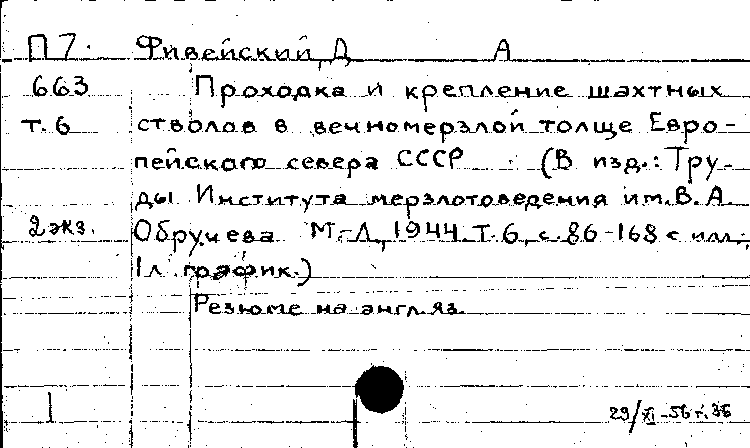 П7. Фивейский, Д А
663 Проходка и крепление шахтных
т.6 стволов в вечномерзлой толще Евро-
пейского севера СССР (В изд.: Тру-
ды Института мерзлотоведения им. В. А.
2 экз. Обручева М.-Л, 1944. Т. 6, с. 86-168 с илл.;
1 л. график.)
Резюме на англ. яз.
29/XI-56 г.